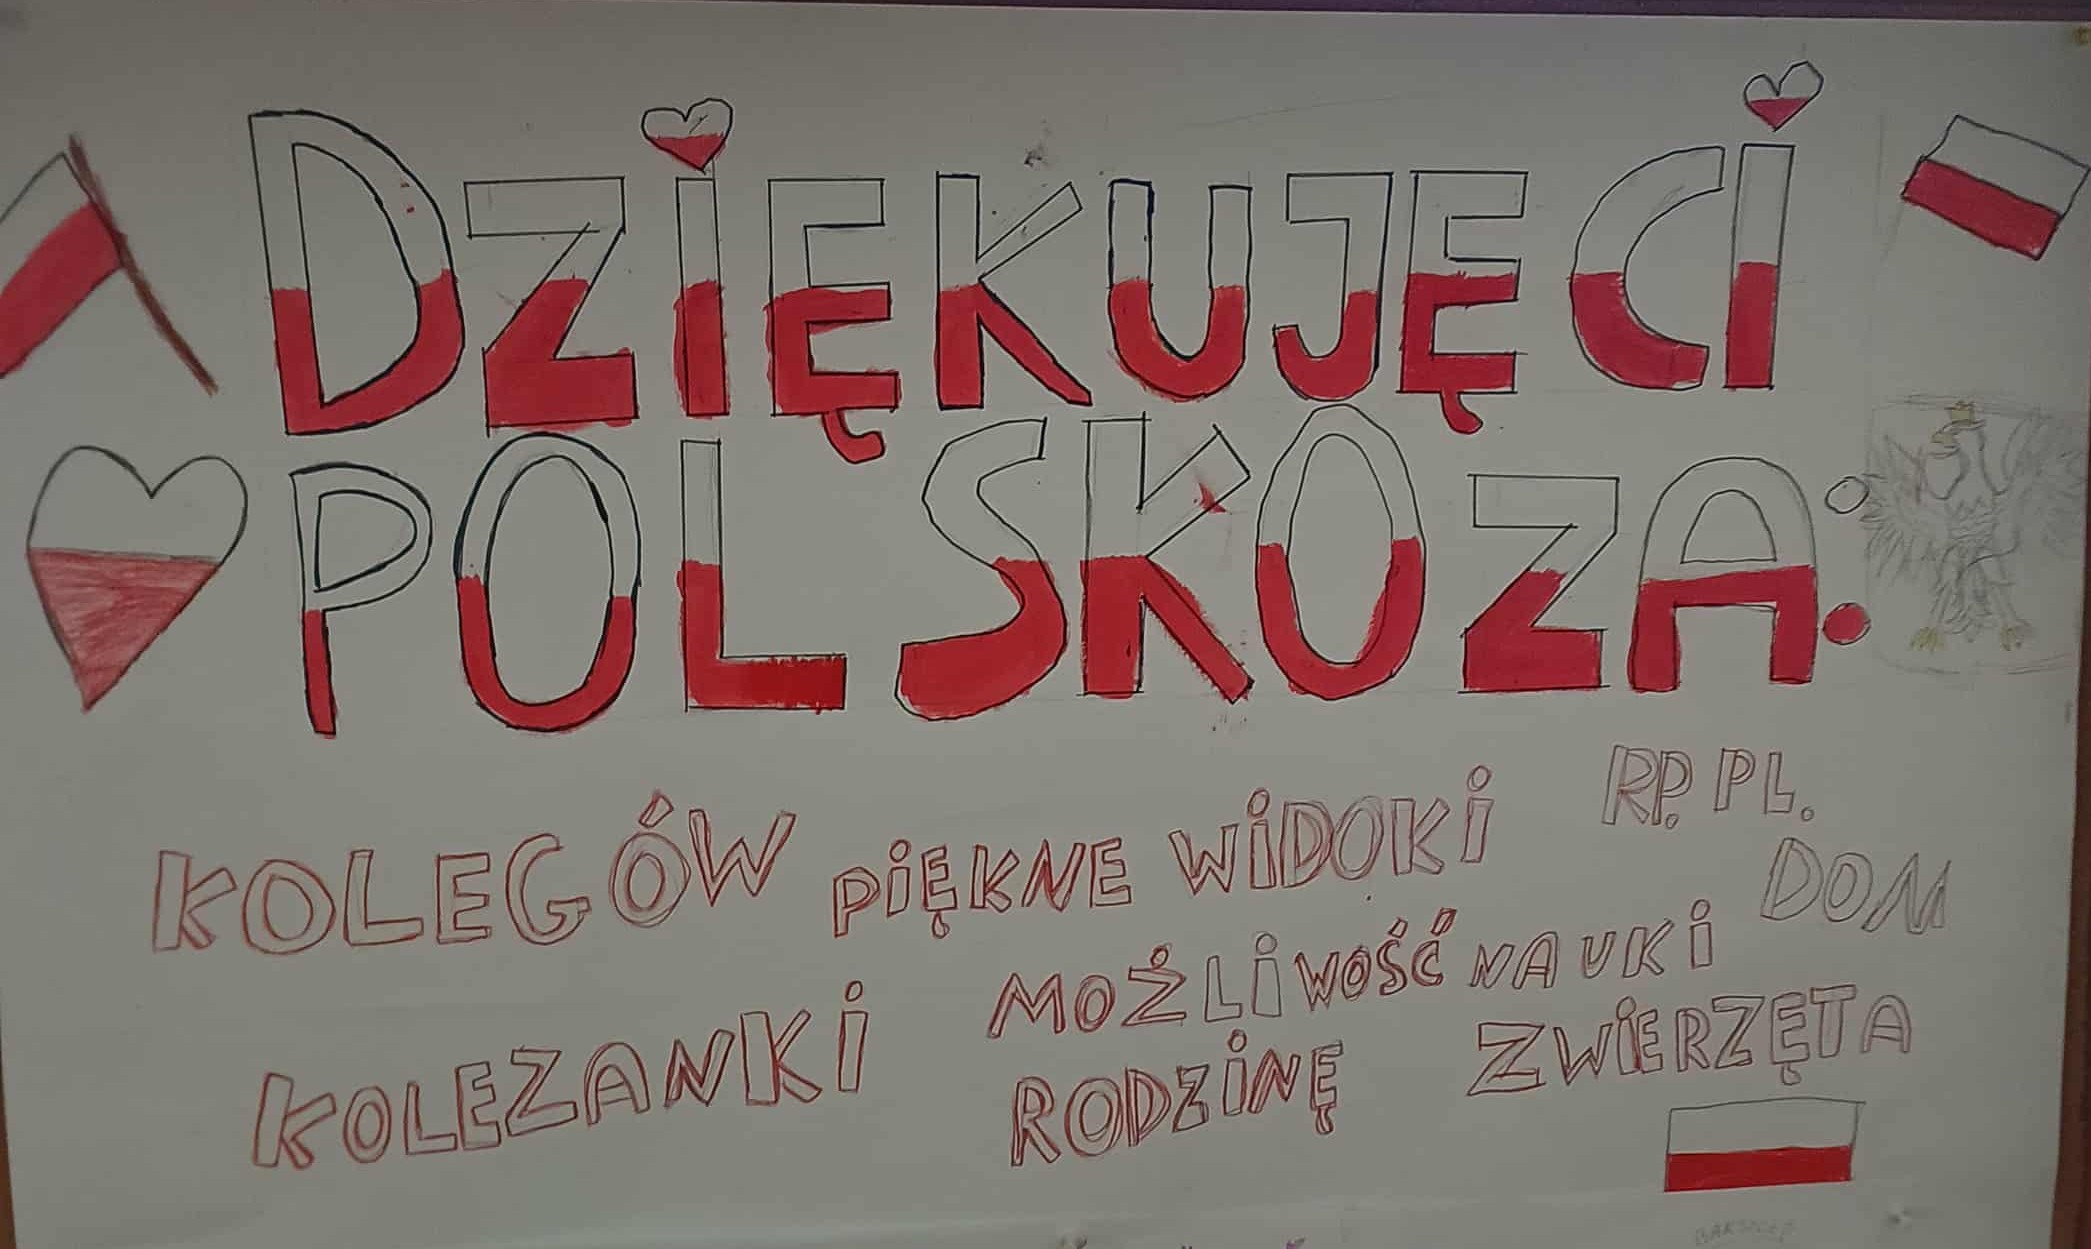 DZIĘKUJĘ CI
POLSKO ZA:
RP. PL.
KOLEGÓW PIĘKNE WIDOKI
DOM
MOŻLIWOŚĆ NAUKI
KOLEZANKI
RODZINĘ ZWIERZĘTA